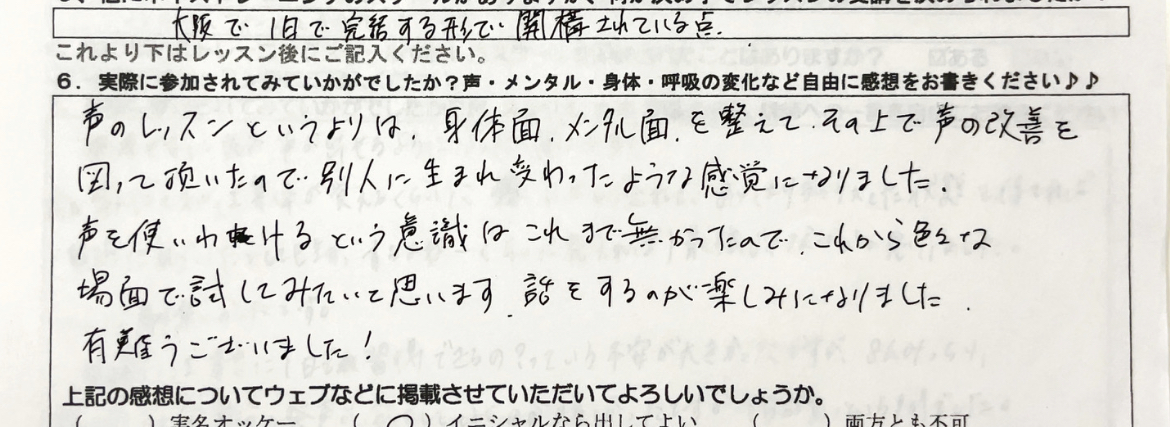 大阪で1日で完結する形で開構されている点.
これより下はレッスン後にご記入ください。
6. 実際に参加されてみていかがでしたか？声・メンタル・身体・呼吸の変化など自由に感想をお書きください♪♪
声のレッスンというよりは、身体面、メンタル面、を整えて、その上で声の改善を
図って頂いたので、別人に生まれ変わったような感覚になりました.
声を使いわけるという意識はこれまで無かったので、これから色々な
場面で試してみたいと思います. 話をするのが楽しみになりました.
有難うございました！
上記の感想についてウェブなどに掲載させていただいてよろしいでしょうか。
( ) 実名オッケー ( ○ ) イニシャルなら出してよい ( ) 両方とも不可